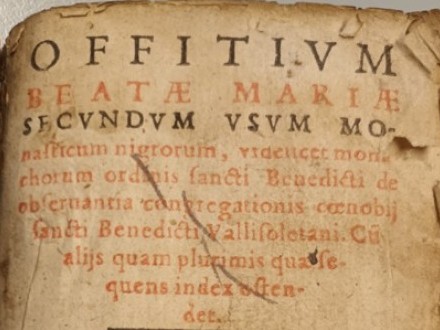 OFFITIVM
BEATÆ MARIÆ
SECVNDVM VSVM MO-
nasticum nigrorum, videlicet mona
chorum ordinis ſancti Benedicti de
obſeruantia congregationis cœnobij
ſancti Benedicti Valliſoletani. Cũ
alijs quam plurimis quæ ſe-
quens index oſten-
det.